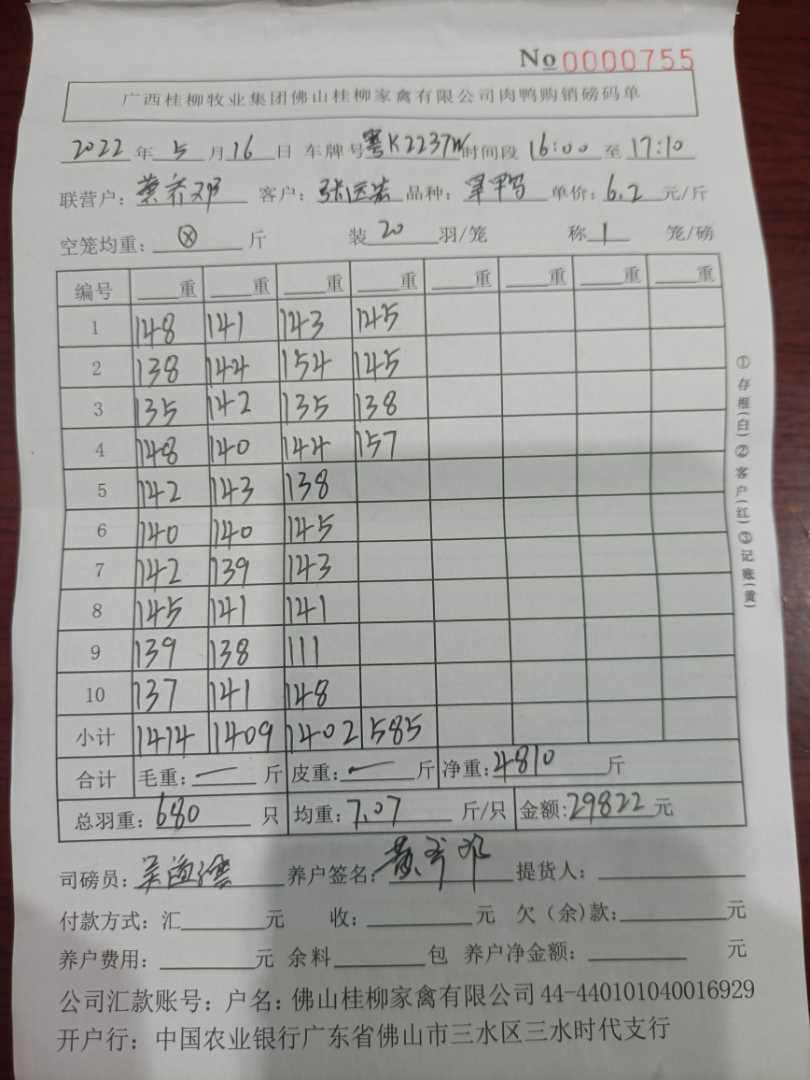 No 0000755
广西桂柳牧业集团佛山桂柳家禽有限公司肉鸭购销磅码单
2022 年 5 月 16 日 车牌号 粤K2237W 时间段 16:00 至 17:10
联营户: 客户: 品种: 单价: 6.2 元/斤
空笼均重: ⊗ 斤 装 20 羽/笼 称 1 笼/磅
编号 重 重 重 重 重 重 重 重
1 148 141 143 145
2 138 144 154 145
3 135 142 135 138
4 148 140 144 157
5 142 143 138
6 140 140 145
7 142 139 143
8 145 141 141
9 139 138 111
10 137 141 148
小计 1414 1409 1402 585
合计 毛重: — 斤 皮重: — 斤 净重: 4810 斤
总羽重: 680 只 均重: 7.07 斤/只 金额: 29822 元
司磅员: 养户签名: 提货人:
付款方式: 汇 元 收: 元 欠(余)款: 元
养户费用: 元 余料 包 养户净金额: 元
公司汇款账号: 户名: 佛山桂柳家禽有限公司 44-440101040016929
开户行: 中国农业银行广东省佛山市三水区三水时代支行
①存根(白)②客户(红)③记账(黄)